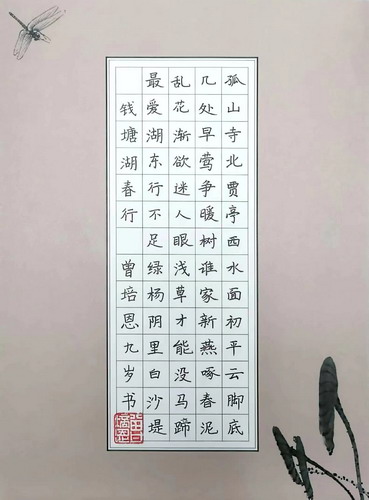 孤山寺北贾亭西水面初平云脚底
几处早莺争暖树谁家新燕啄春泥
乱花渐欲迷人眼浅草才能没马蹄
最爱湖东行不足绿杨阴里白沙堤
钱塘湖春行 曾培恩九岁书